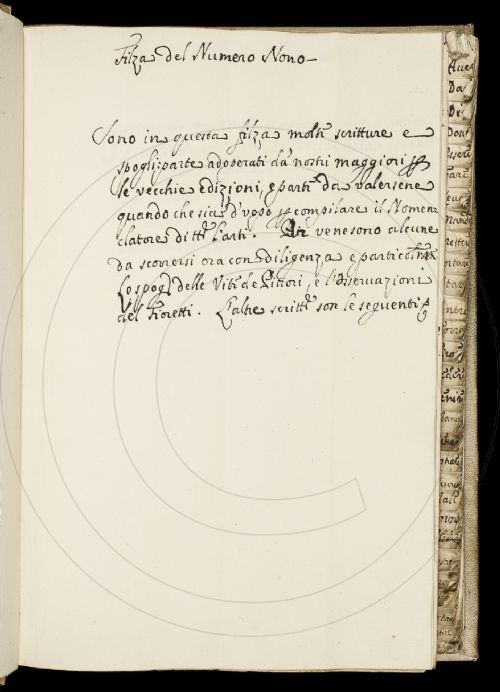 Filza del Numero Nono
Sono in questa filza molte scritture e
spogli: parte adoperati da nostri maggiori p
le vecchie Edizioni, e parte da valersene
quando che sia d'vopo p compilare il Nomen
clatore di tte l'arti. Ve ne sono alcune
da scorrersi ora con diligenza e particolrmte
lo spoglo delle Vite de Pittori, e l'Osservazioni
del Fioretti. L'altre scritte son le seguenti
Da
Di